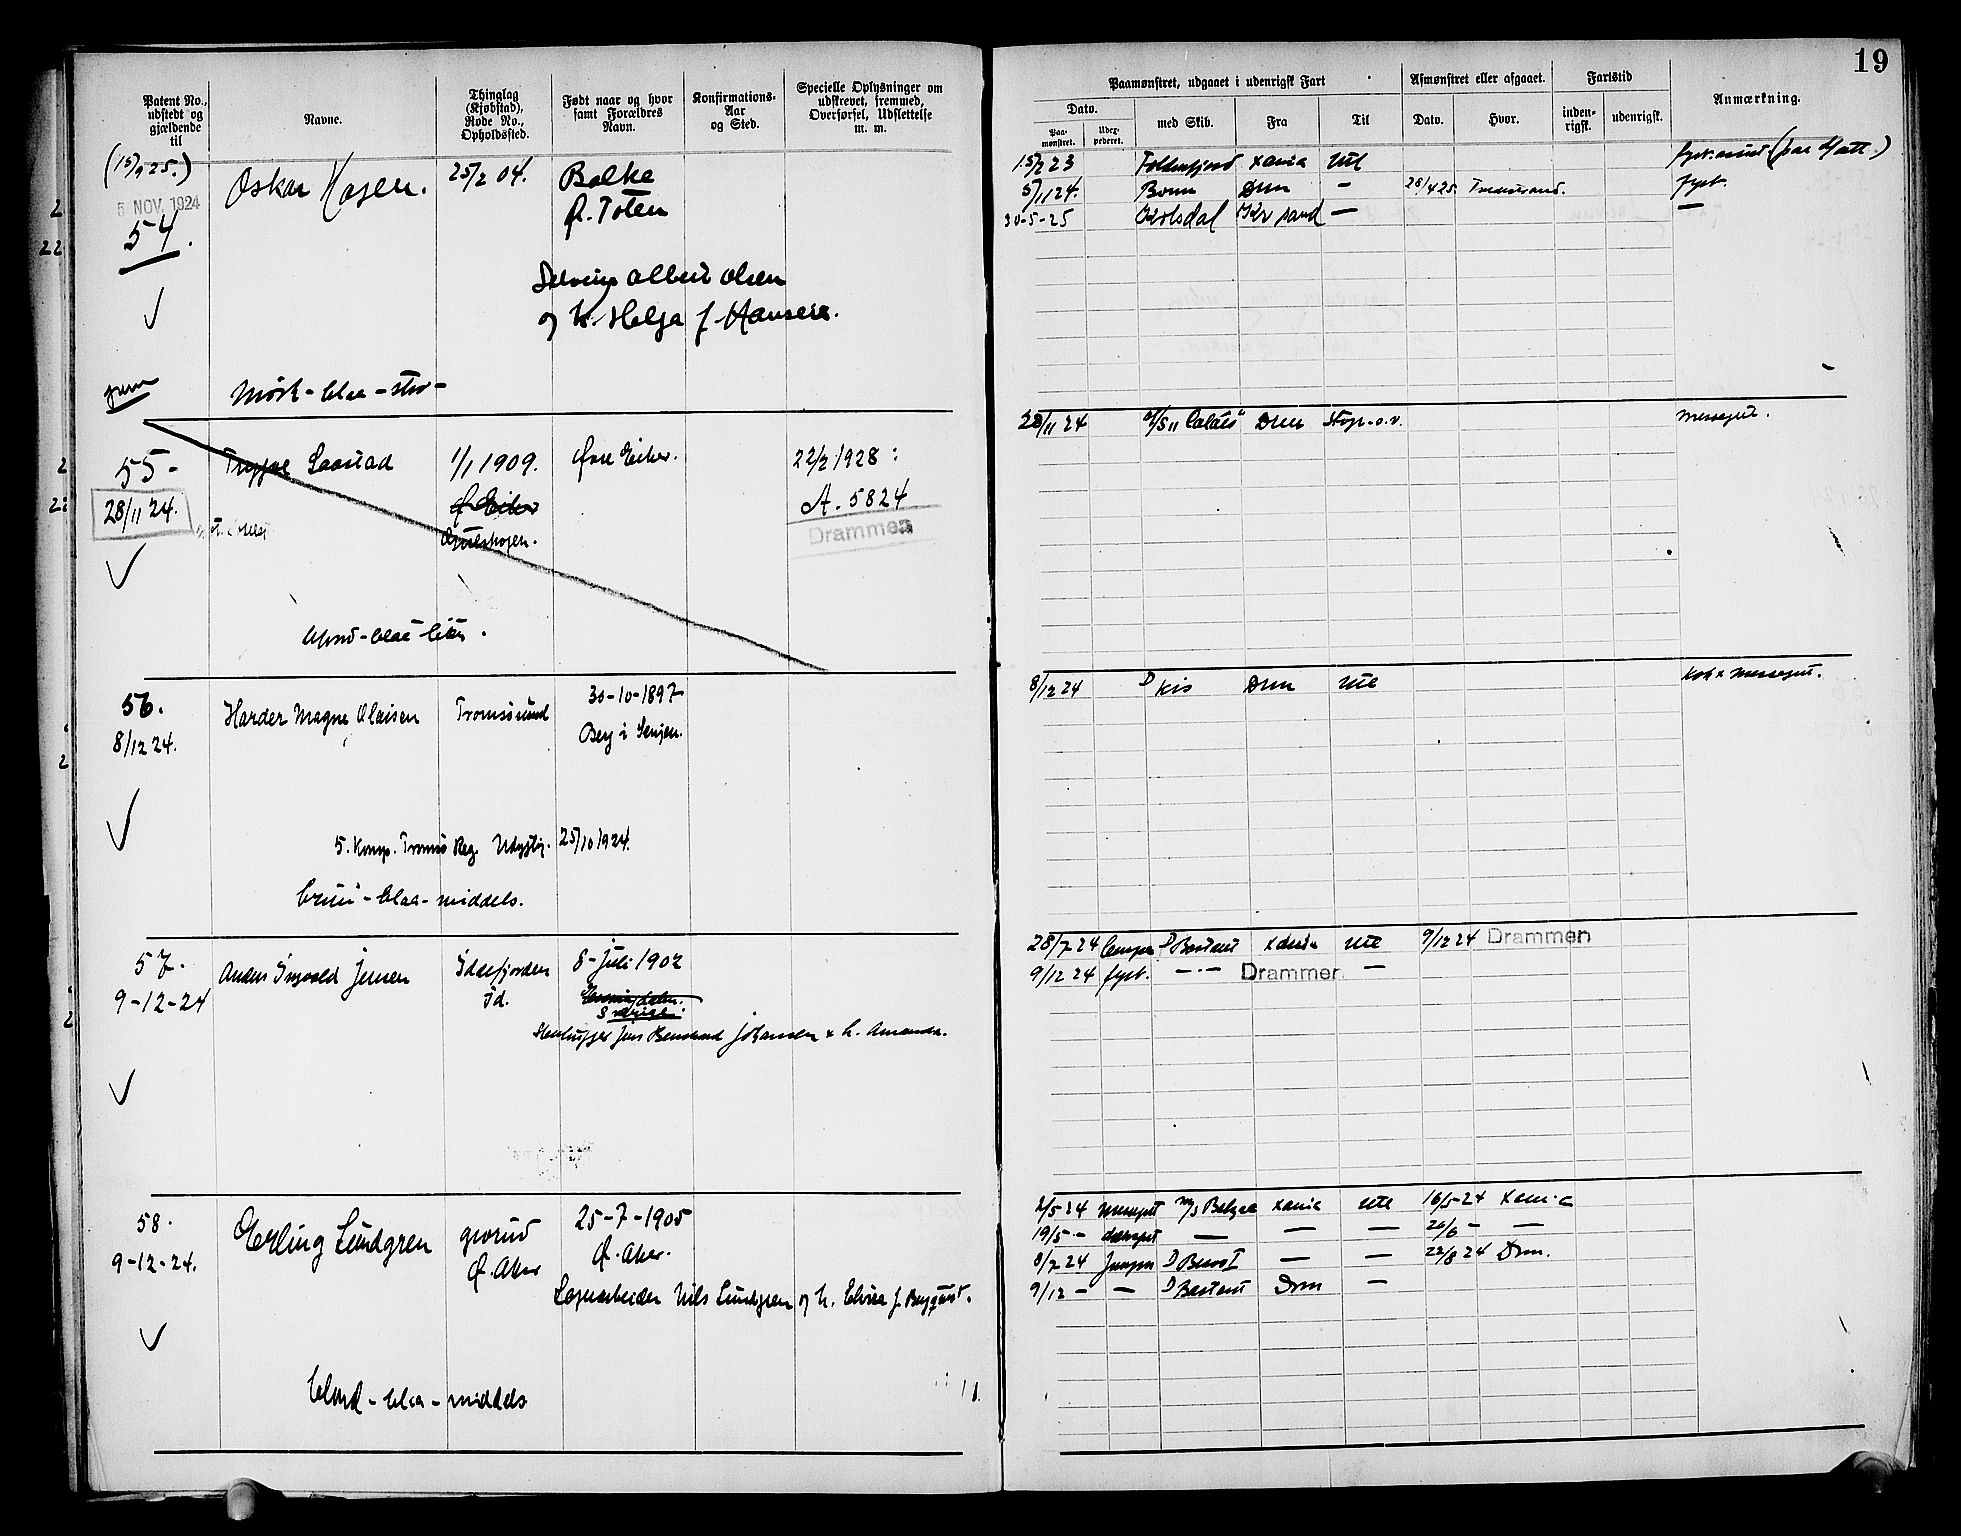 19
Patent No., udstedt og gjældende til
Navne.
Thinglag (Kjøbstad), Rode No., Opholdssted.
Født naar og hvor samt Forældres Navn.
Konfirmations-Aar og Sted.
Specielle Oplysninger om udskrevet, fremmed, Overførsel, Udslettelse m. m.
Paamønstret, udgaaet i udenrigsk Fart
Afmønstret eller afgaaet.
Fartstid
Anmærkning.
Dato.
Paa-mønstret.
med Skib.
Fra
Til
Dato.
Hvor.
inden-rigsk.
udenrigsk.
(15/9 25.)
5 NOV. 1924
54.
Oskar Hagen.
25/2 04.
Balke
Ø. Toten
Albert Olsen
og h. Helga f. Hansen.
Mørk - blaa - stor -
15/2 23 Xania Ute
5/11 24. Bonn Drm — 28/4 25 fyrb.
30-5-25 Kolsdal Kr sand — —
55-
28/11 24.
Trygve
1/1 1909.
Øvre Eiker.
22/2 1928 :
A. 5824
Drammen
Ø Eiker
blond - blaa liten.
28/11 24 D/S "Calais" Drm o.v. messegut.
56.
8/12 24.
Harder Magne Olaisen
Tromsøsund
30-10-1897
Berg i Senjen.
5. Komp. Tromsø Reg. 25/10 1924.
brun - blaa - middels.
8/12 24 D Kis Drm Ute Kok & messegut.
57.
9-12-24
Anders Ingvald Jensen
Iddefjorden
Id.
8-Juli 1902
Sverige.
Stenhugger Jens Bernhard Johansen & h. Amanda.
28/7 24 D Bastant Xania Ute 9/12 24 Drammen
9/12 24 fyrb. — · — Drammen —
58.
9-12-24.
Erling Lundgren
Grorud
Ø. Aker
25-7-1905
Ø. Aker.
Nils Lundgren og h. Elvira f. Bergqvist.
blond - blaa - middels
2/5 24 messegut M/S Xania Ute 16/5 24 Xania
19/5 - — — — 20/6 - —
8/7 24 Jungm D — — 22/8 24 Drm.
9/12 - — D Bastant Drm —